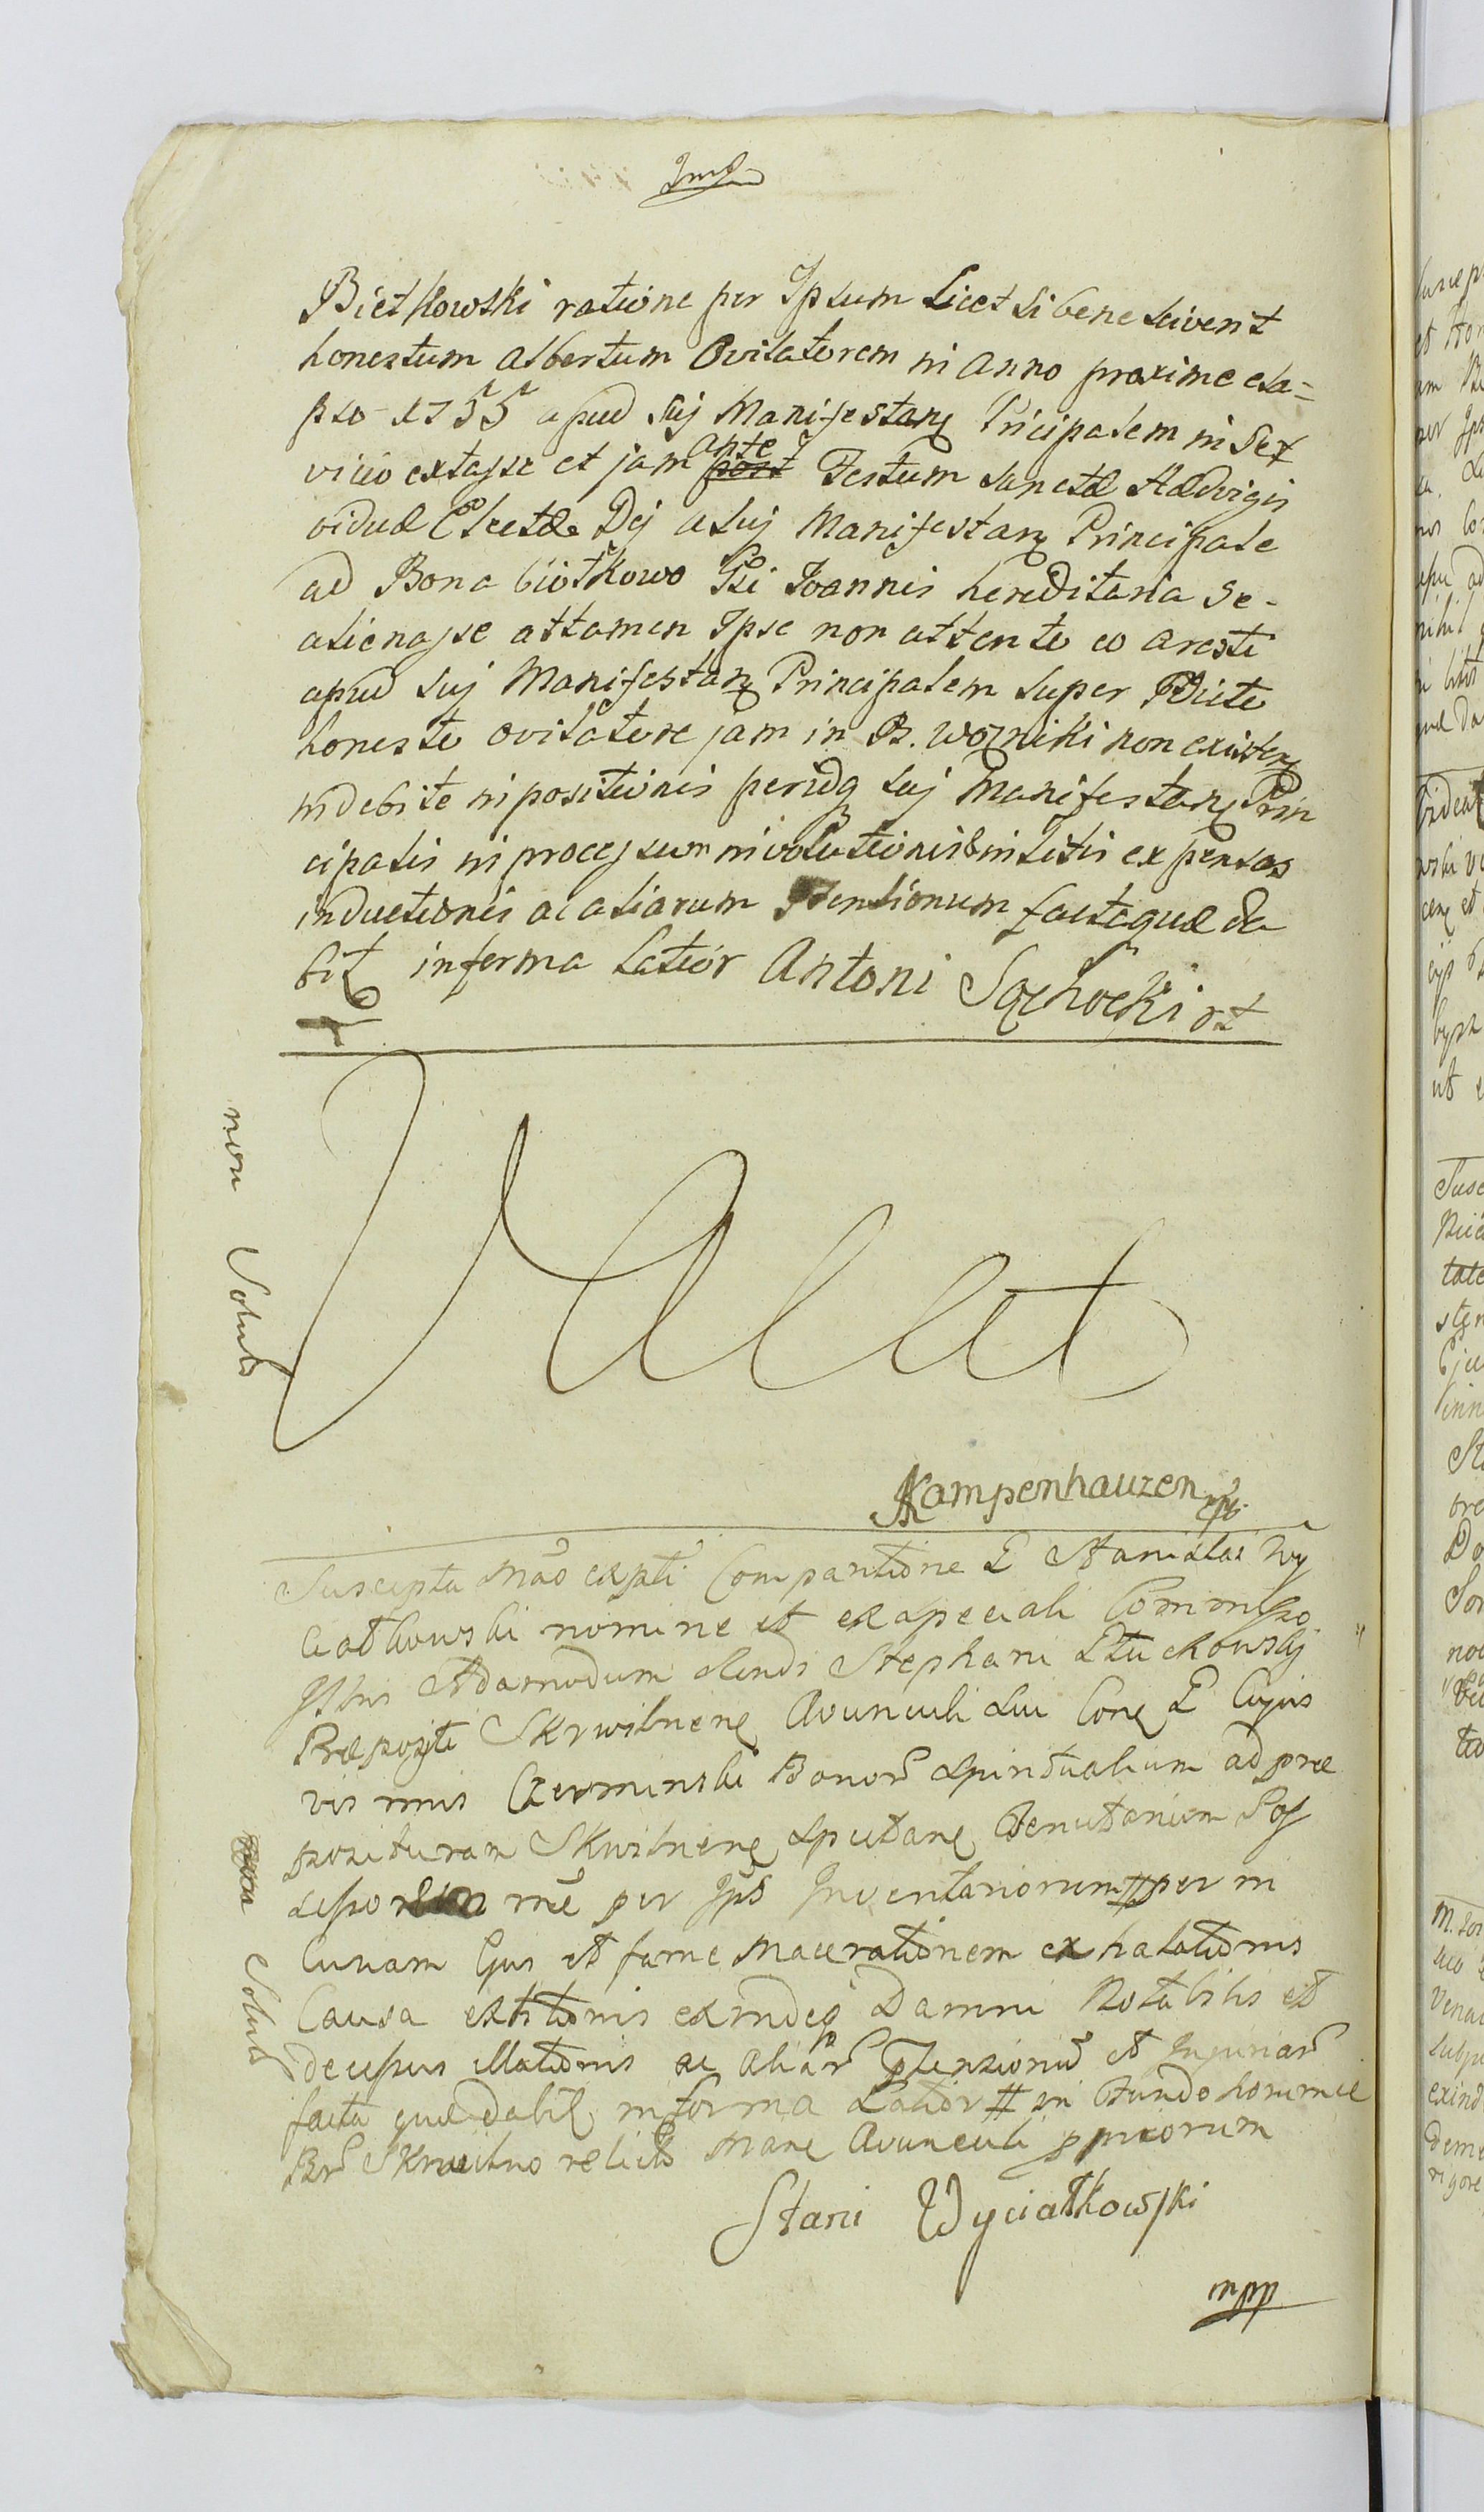 Bietkowski ratione per Ipsum Licet si bene sciverit
honestum Albertum Ovilatorem in Anno proxime ela=
pso 1755 apud sui Manifestan Pricipalem in Ser
vicio extasse et jam ante post Festum Sanctæ Hædvigis
viduæ Electæ Dej a suj Manifestan Principale
ad Bona Bιötkowo Psi Joannis hereditaria se-
alienasse attamen Ipse non attento eo aresti
apud suj Manifestan Principalem super Pdicto
honesto Ovilatore jam in B. Wozniki non existen
indebite inpositionis perindq suj Manifestan Prin
cipalis in processum involutionis & in Litis expensas
inductionis ac aliarum Ptensionum factaque da
bit informa Latior Antoni Sąchocki rt
Valet
non Solut
Kampenhauzen mp
Suscepta Mão expti Comparitione G Stanislai Wy
ciatkowski nomine et ex speciali Commisso
Admodum Rendi Stephani Ptuckowskj
Præpositi Skrwilnen Avunculi sui Con G Cujus
vis mis Czerminski Bonor Spiritualium ad præ
posituram Skrwilnen Spectan Tenutarium Pos
sesso me per Ips Inventariorum # per in
Curiam Ejus et fame Macerationem exhalationis
Causa extitionis exindeq Damni Notabilis et
decessus illationis ac aliar Ptensionu et Injuriar
facta quæ dabit informa Latior # in Fundo hominæ
Br Skrwilno relict Mane Avunculi ppriorum
non Solut
Stani Wyciatkowski
mpp